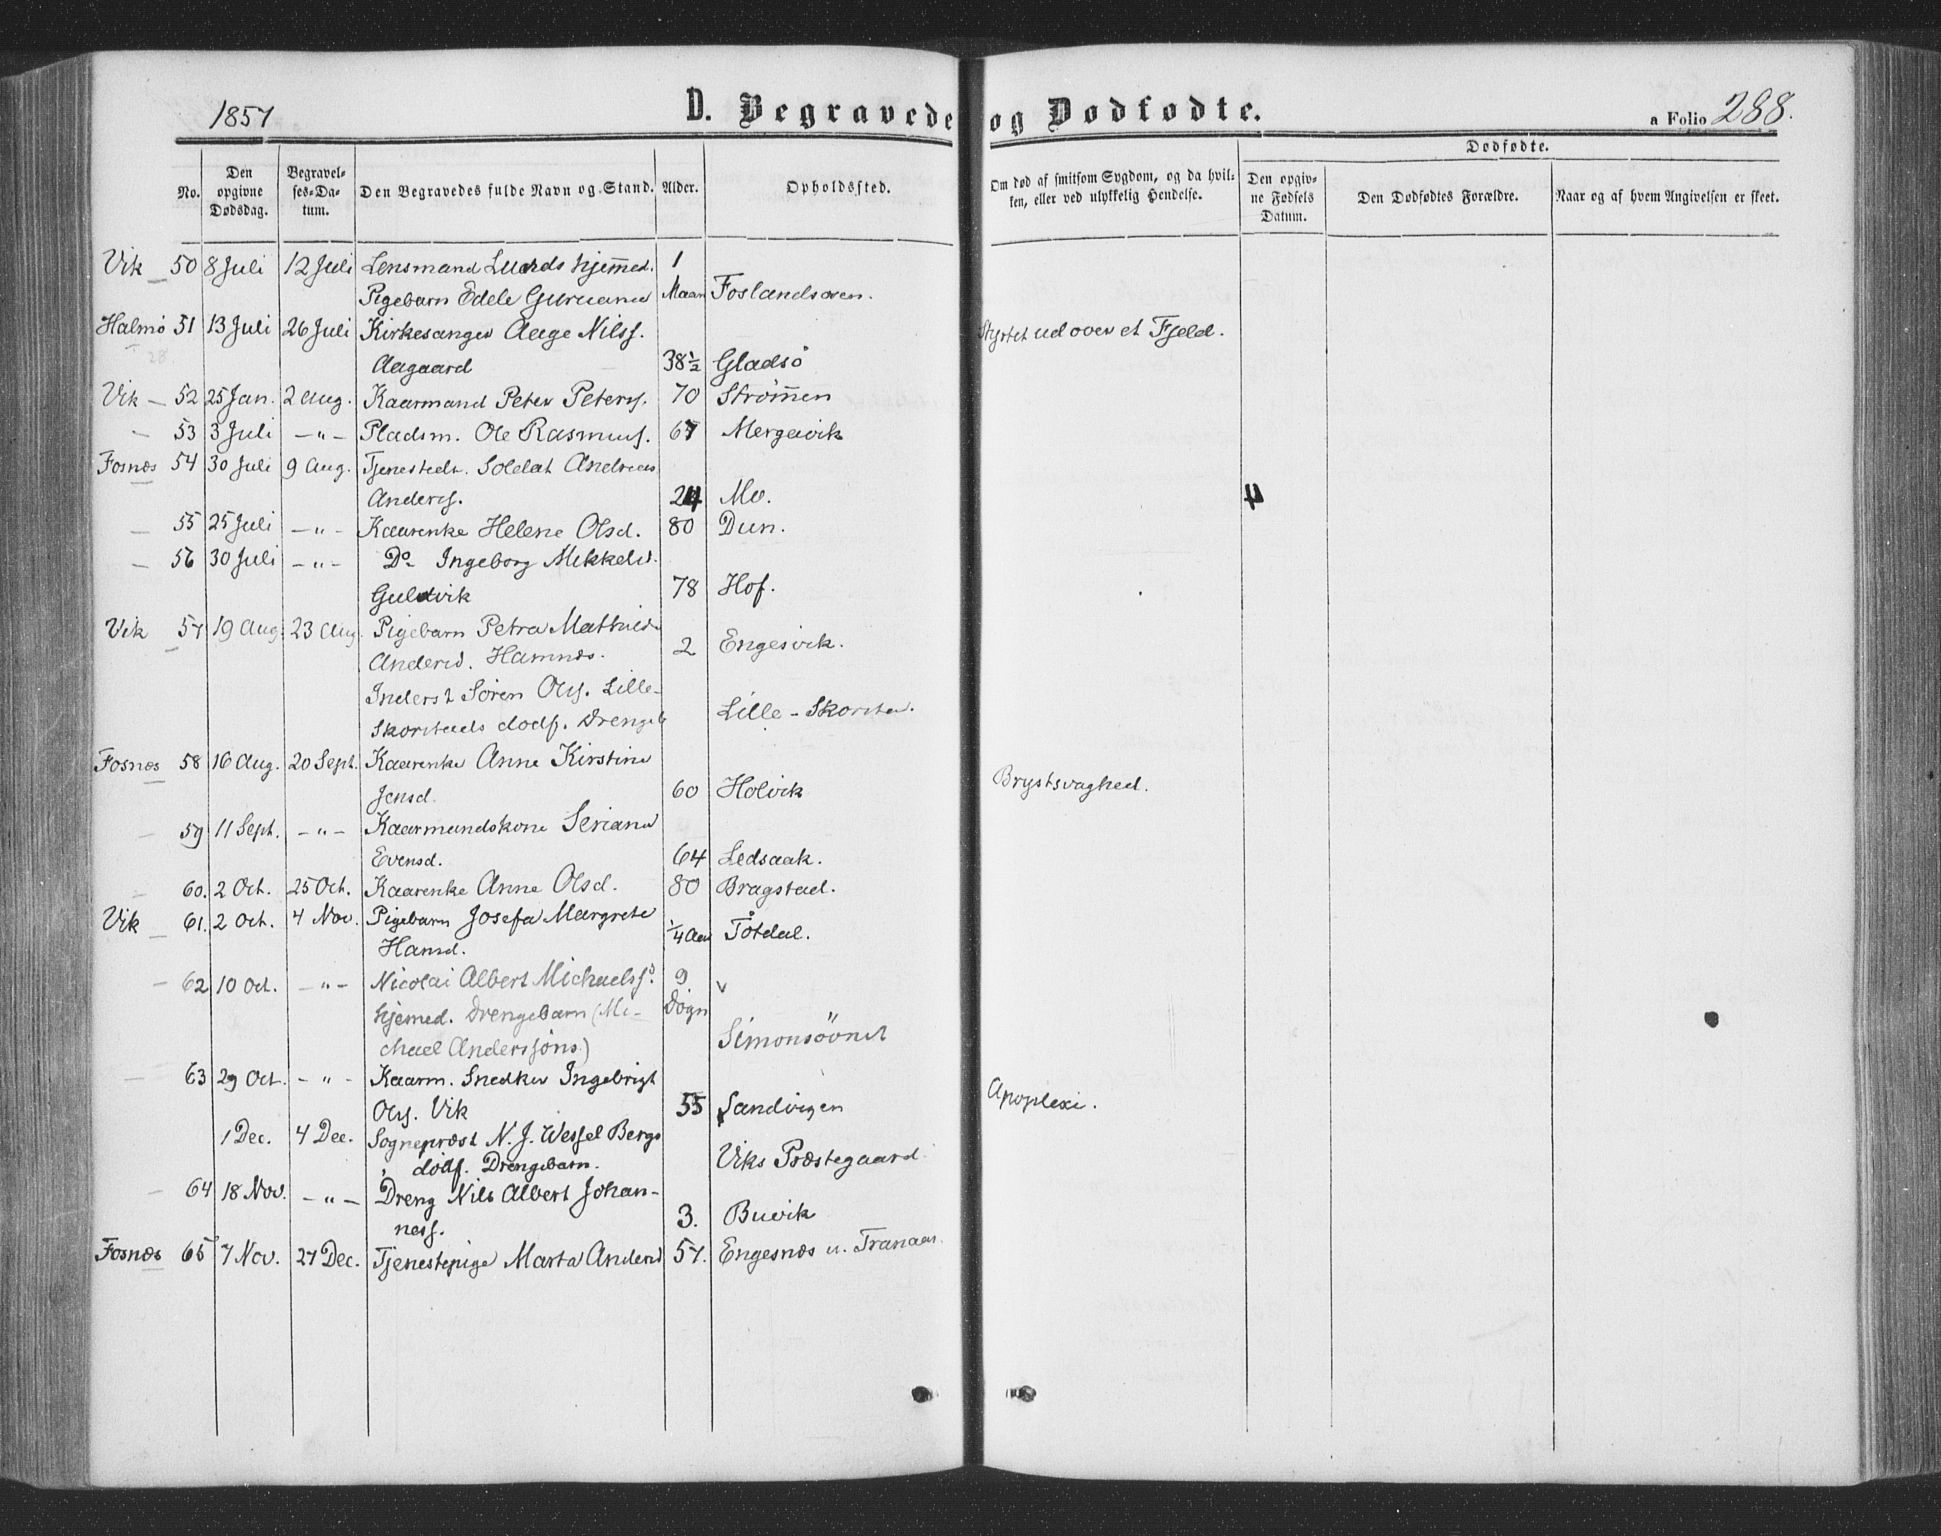 1857
D. Begravede og Dødfødte.
a Folio 288.
No.
Den opgivne Dødsdag.
Begravelses-Datum.
Den Begravedes fulde Navn og Stand.
Alder.
Opholdssted.
Om død af smitsom Sygdom, og da hvilken, eller ved ulykkelig Hendelse.
Dødfødte.
Den opgivne Fødsels Datum.
Den Dødfødtes Forældre.
Naar og af hvem Angivelsen er skeet.
Vik 50 8 Juli 12 Juli Lensmand hjemmed. 1
Pigebarn Edele Maan Foslandsosen.
Halmø 51 13 Juli 26 Juli Kirkesanger Aage Nilss. Styrtet ud over et Fjeld.
Aagaard 38½ Gladsö
Vik — 52 25 Jan. 2 Aug. Kaarmand Peter Peterss. 70 Strømmen
— 53 3 Juli — " — Pladsm. Ole Rasmuss. 67 Mergavik
Fosnæs 54 30 Juli 9 Aug. Tjenestedr. Soldat Andreas
Anderss. 24 Mo.
— 55 25 Juli — " — Kaarenke Helene Olsd. 80 Dun.
— 56 30 Juli — " — Do Ingeborg Mikkelsd.
Guldvik 78 Hof.
Vik 57 19 Aug. 23 Aug. Pigebarn Petra Mathilde
Andersd. Hamnæs. 2 Engesvik.
Inderst Søren Olss. Lille-
Skorstads dødf. Drengeb Lille-Skorstad.
Fosnæs 58 16 Aug. 20 Sept. Kaarenke Anne Kirstine
Jensd. 60 Holvik Brystsvaghed.
— 59 11 Sept. — " — Kaarmandskone Seriana
Evensd. 64 Ledsaak.
— 60. 2 Oct. 25 Oct. Kaarenke Anne Olsd. 80 Bragstad.
Vik — 61. 2 Oct. 4 Nov. Pigebarn Josefa Margrete
Hansd. ¼ Aar Tötdal.
— 62 10 Oct. — " — Nicolai Albert Michaelss. 9
hjemed. Drengebarn (Mi- Døgn
chael Anderssøns.) Simonsövnet
— 63 29 Oct. — " — Kaarm. Snedker Ingebrigt
Olss. Vik 55 Sandvigen Apoplexi.
1 Dec. 4 Dec. Sognepræst N. J. Wessel Bergs
dödf. Drengebarn. Viks Præstegaard
— 64 18 Nov. — " — Dreng Nils Albert Johan-
ness. 3. Buvik
Fosnæs 65 7 Nov. 27 Dec. Tjenestepige Marta Andersd 57. Engesnæs u. Tranaas.